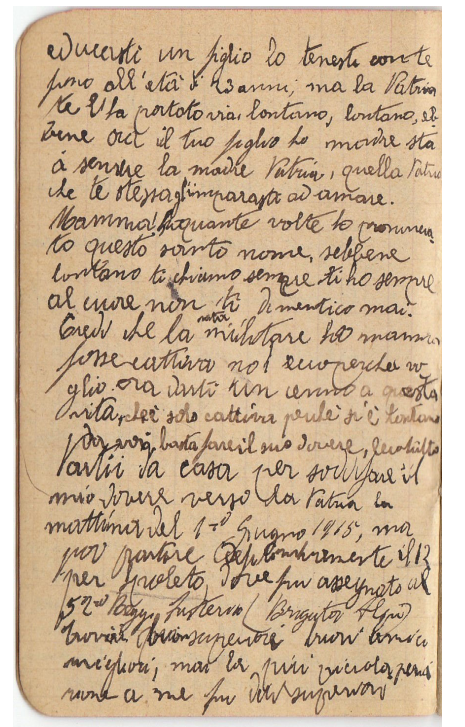 educasti un figlio lo tenesti con te
fino all'età di 23 anni, ma la Patria
te l'ha portato via lontano, lontano, eb
bene ora il tuo figlio ho madre sta
a servire la madre Patria, quella Patria
che te stessa gl'imparasti ad amare.
Mamma! quante volte lo pronuncia
to questo santo nome, sebbene
lontano ti chiamo sempre ti ho sempre
al cuore non ti dimentico mai.
Credi che la vita militare ho mamma
fosse cattiva no! ecco perche vo
glio ora darti un cenno a questa
vita, è solo cattiva perche si è lontano
da voi, basta fare il suo dovere, ecco tutto
Partii da casa per soddisfare il
mio dovere verso la Patria la
mattina del 1º Giugno 1915, ma
poi partire il 12
per Spoleto, dove fui assegnato al
52º Regg. Fanteria (Brigata Alpi)
trovai buoni superiori buoni amici
migliori, mai la più piccola puni
zione a me fu dai superiori